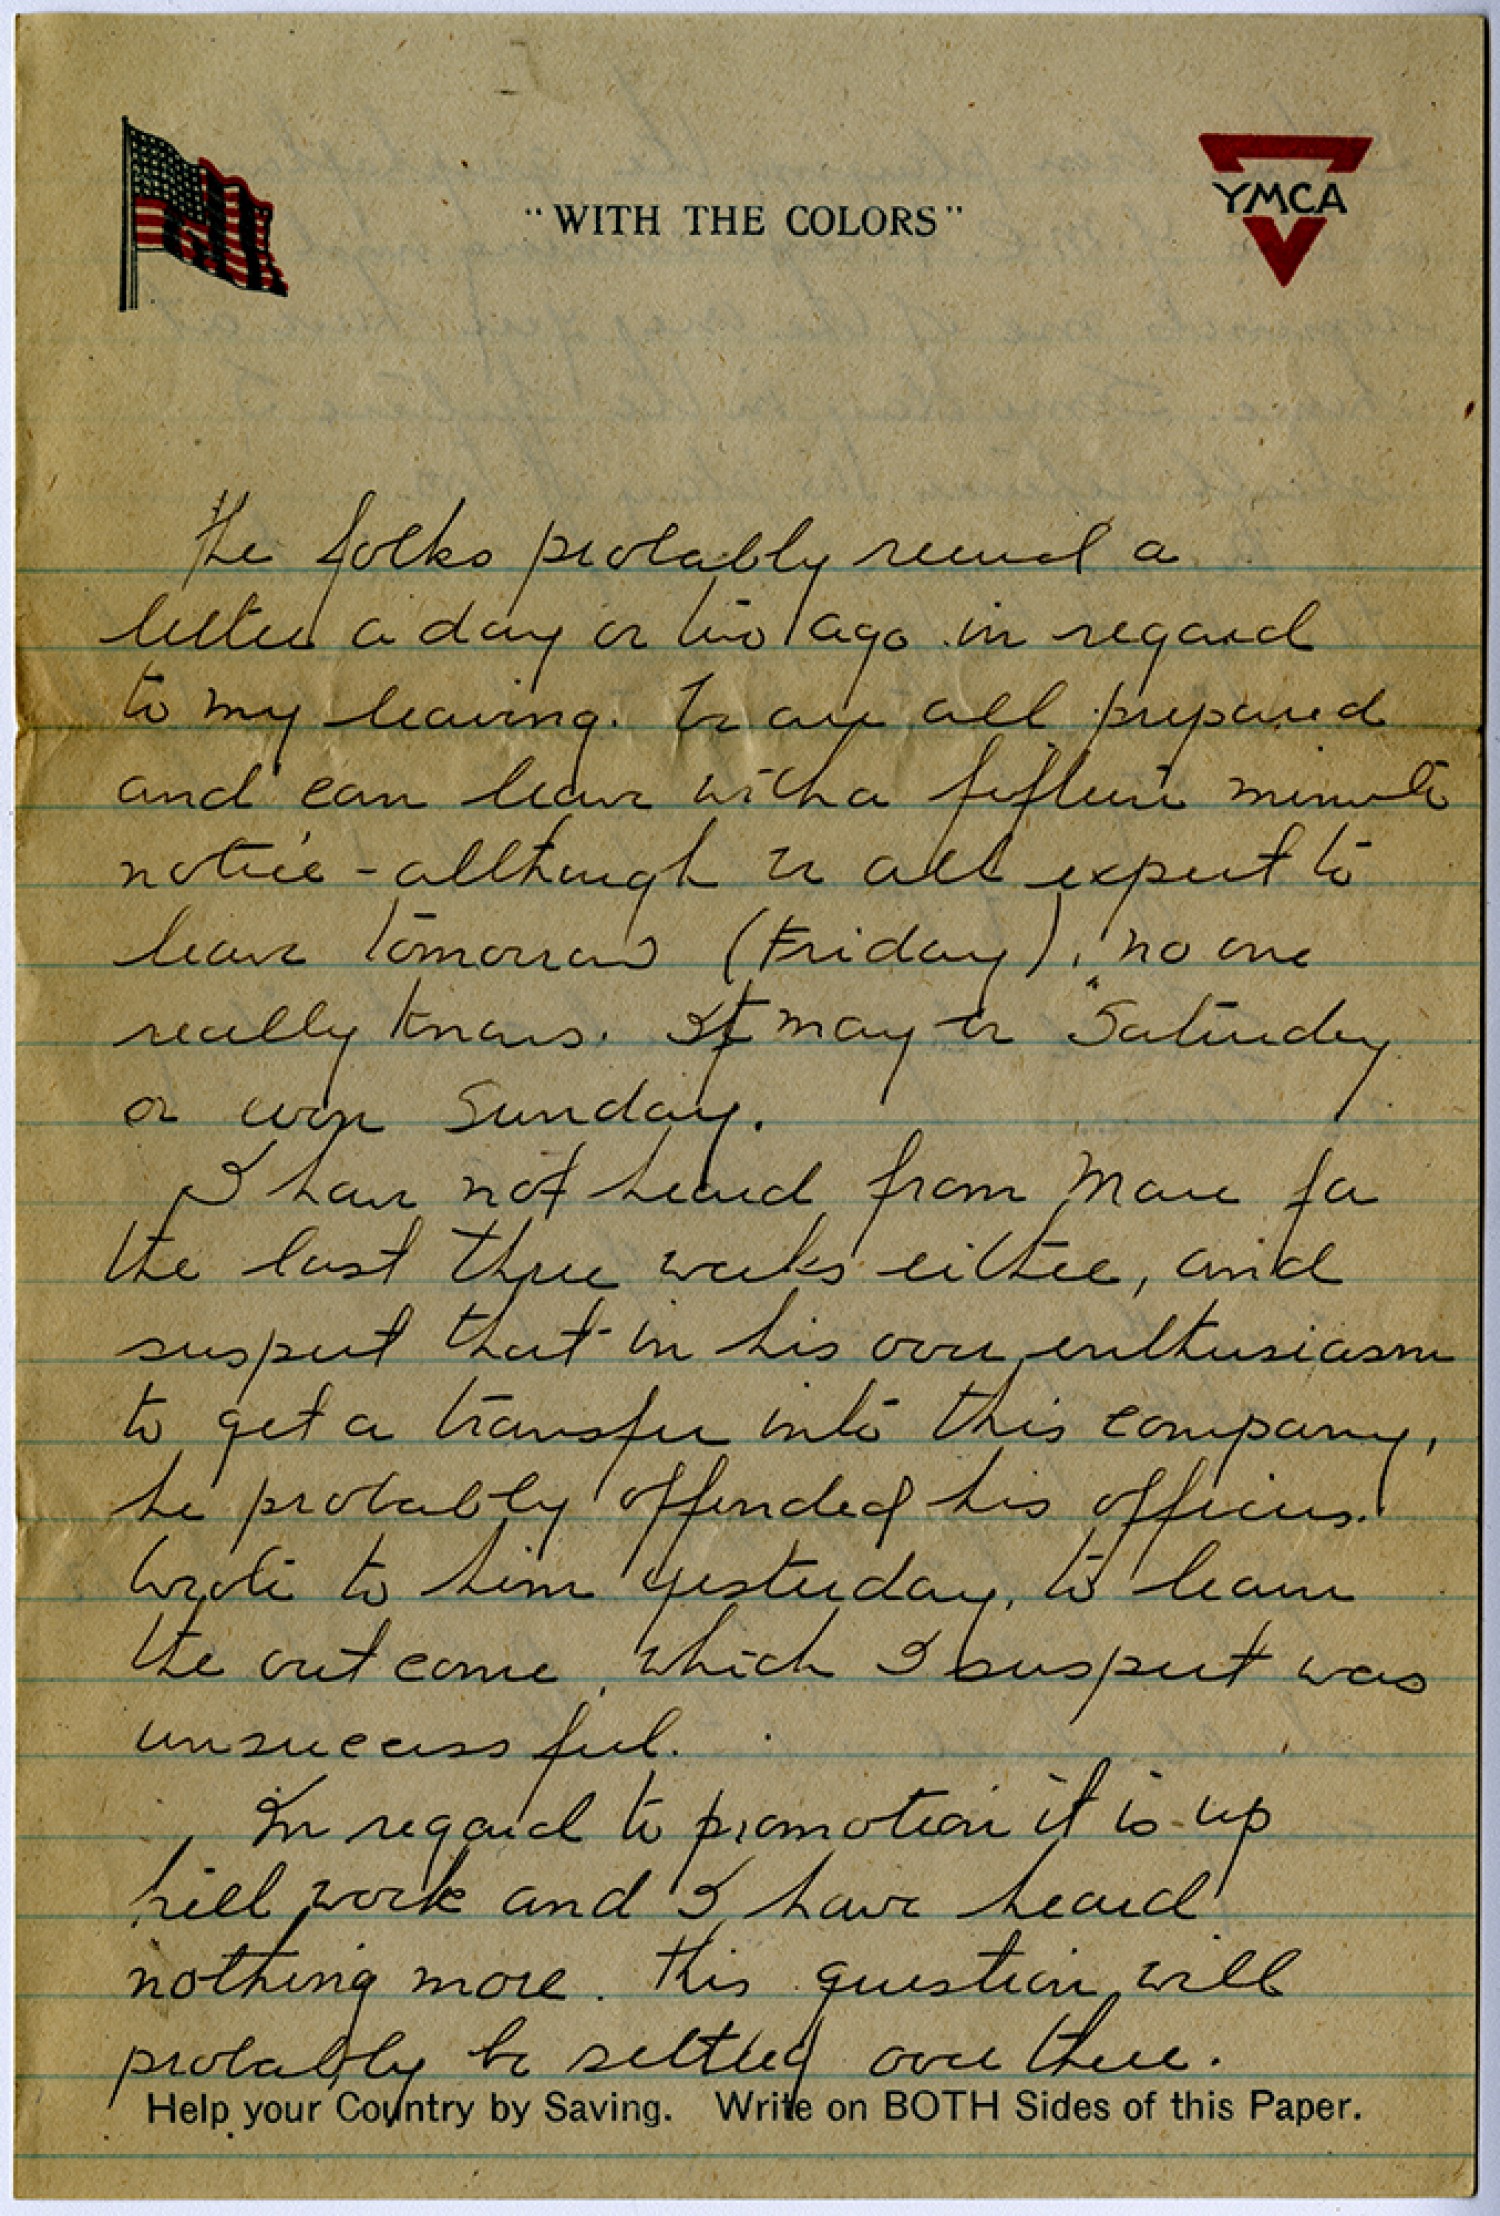 "WITH THE COLORS"
YMCA
The folks probably received a
letter a day or two ago in regard
to my leaving. We are all prepared
and can leave with a fifteen minute
notice - allthough we all expect to
leave tomorrow (Friday), no one
really knows. It may be Saturday
or even Sunday.
I have not heard from for
the last three weeks either, and
suspect that in his over enthusiasm
to get a transfer into this company,
he probably offended his officers.
Wrote to him yesterday, to learn
the out come, which I suspect was
unsuccessful.
In regard to promotion it is up
hill work and I have heard
nothing more. This question will
probably be settled over there.
Help your Country by Saving. Write on BOTH Sides of this Paper.